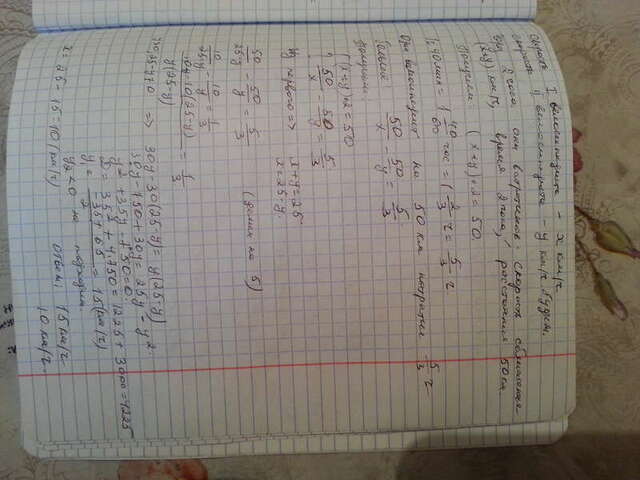 Скорость I велосипедиста - x км/ч
скорость II велосипедиста - y км/ч. Будем,
через 2 часа они встретились. Скорость сближения
(x+y) км/ч, время 2 часа, расстояние 50 км
Получили: (x+y)·2=50.
1ч40мин = 1 40/60 час = 1 2/3 ч = 5/3 ч
Один велосипедист на 50 км потратил 5/3 ч
больше: 50/x - 50/y = 5/3
Получили:
{ (x+y)·2=50
50/x - 50/y = 5/3
Из первого => x+y=25
x=25-y
50/25-y - 50/y = 5/3 (делим на 5)
10/25-y - 10/y = 1/3
10y-10(25-y)/y(25-y) = 1/3
y≠25, y≠0 => 30y-30(25-y)=y(25-y)
30y-750+30y=25y-y²
y²+35y-750=0
D=35²+4·750=1225+3000=4225
y=-35+65/2=15(км/ч)
y₂<0 не подходит
x=25-15=10(км/ч)
Ответ: 15 км/ч
10 км/ч